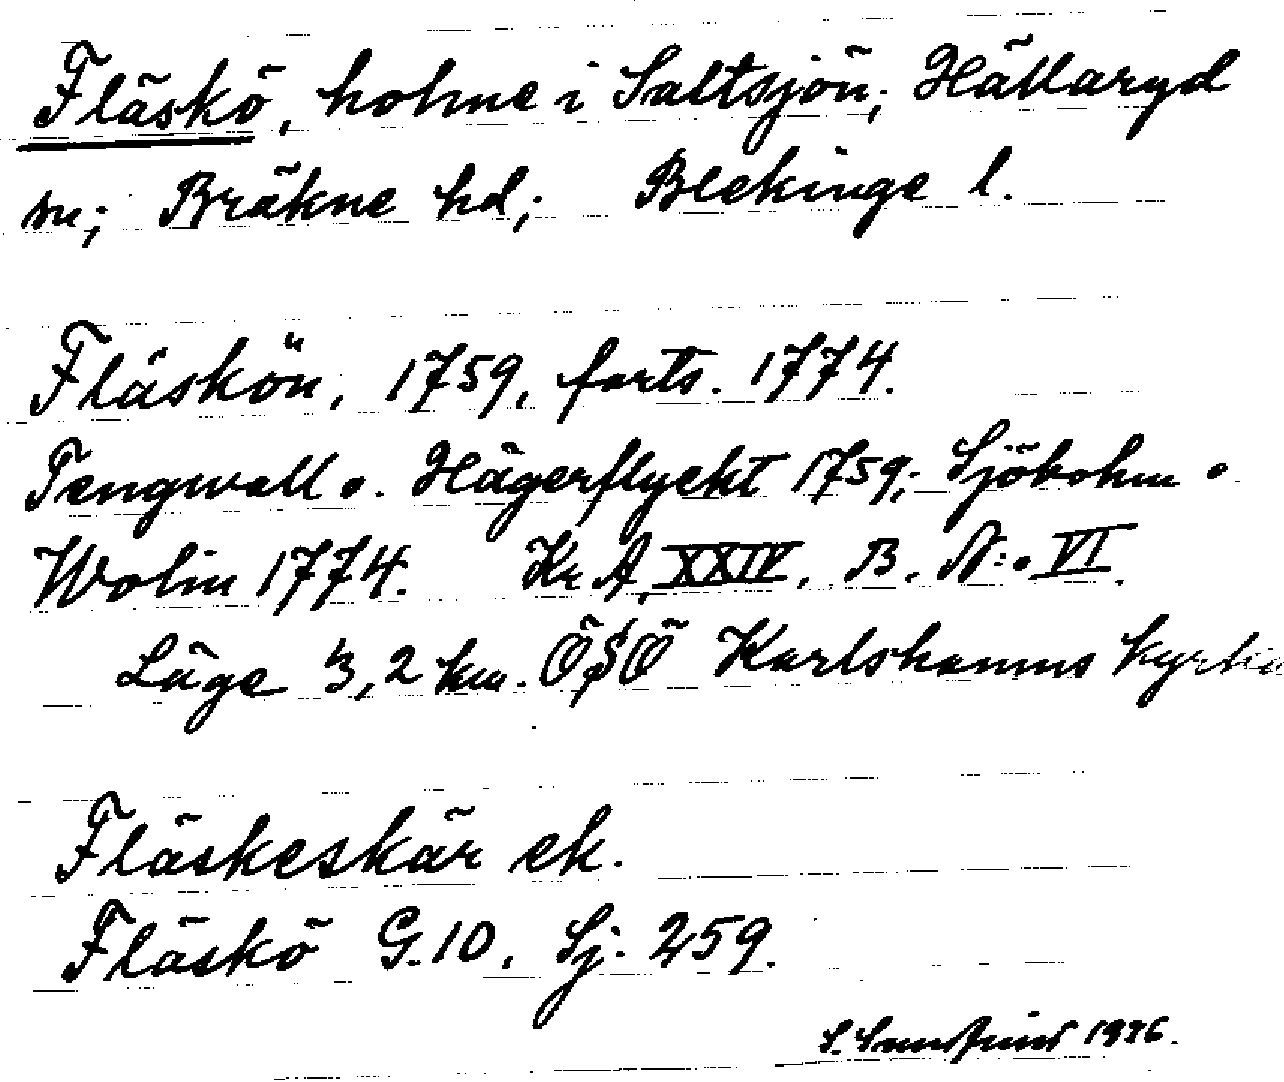 Fläskö, holme i Saltsjön; Hällaryd
sn; Bräkne hd; Blekinge l.
Fläskön, 1759, forts. 1774.
Tengwall o. Hägerflyckt 1759; Sjöbohm o
Wolin 1774. Kr A, XXIV, B. N:o VI.
Läge 3,2 km. ÖSÖ Karlshamns kyrka
Fläskeskär ek.
Fläskö G.10, Sj. 259.
S. 1936.